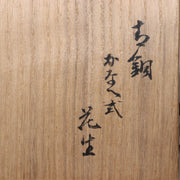 古銅
かなへ式
花生